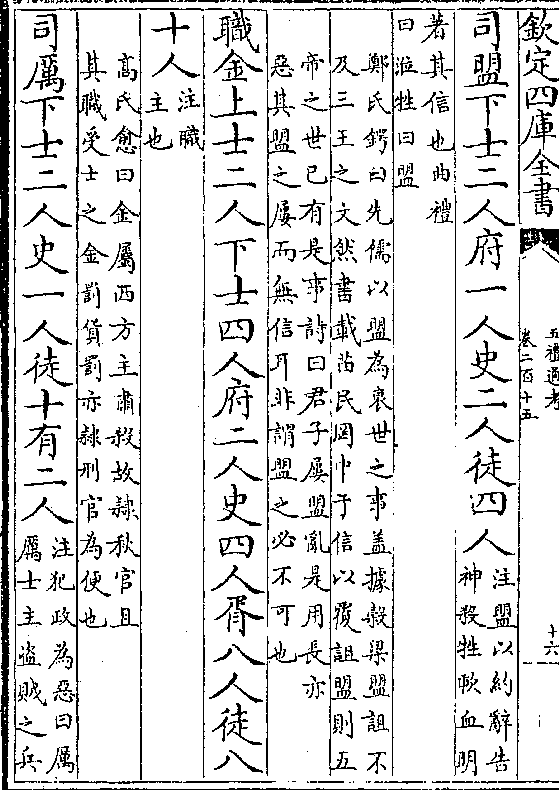 欽定四庫全書
五禮通考
卷二百十五
十六
司盟下士二人府一人史二人徒四人
注盟以約辭告
神殺牲歃血明
著其信也曲禮
曰涖牲曰盟
鄭氏鍔曰先儒以盟為衰世之事蓋據榖梁盟詛不
及三王之文然書載苗民罔中于信以覆詛盟則五
帝之世已有是事詩曰君子屢盟亂是用長亦
惡其盟之屢而無信耳非謂盟之必不可也
職金上士二人下士四人府二人史四人胥八人徒八
十人
注職
主也
高氏愈曰金屬西方主肅殺故隸秋官且
其職受士之金罰貨罰亦隸刑官為便也
司厲下士二人史一人徒十有二人
注犯政為惡曰厲
厲士主盜賊之兵